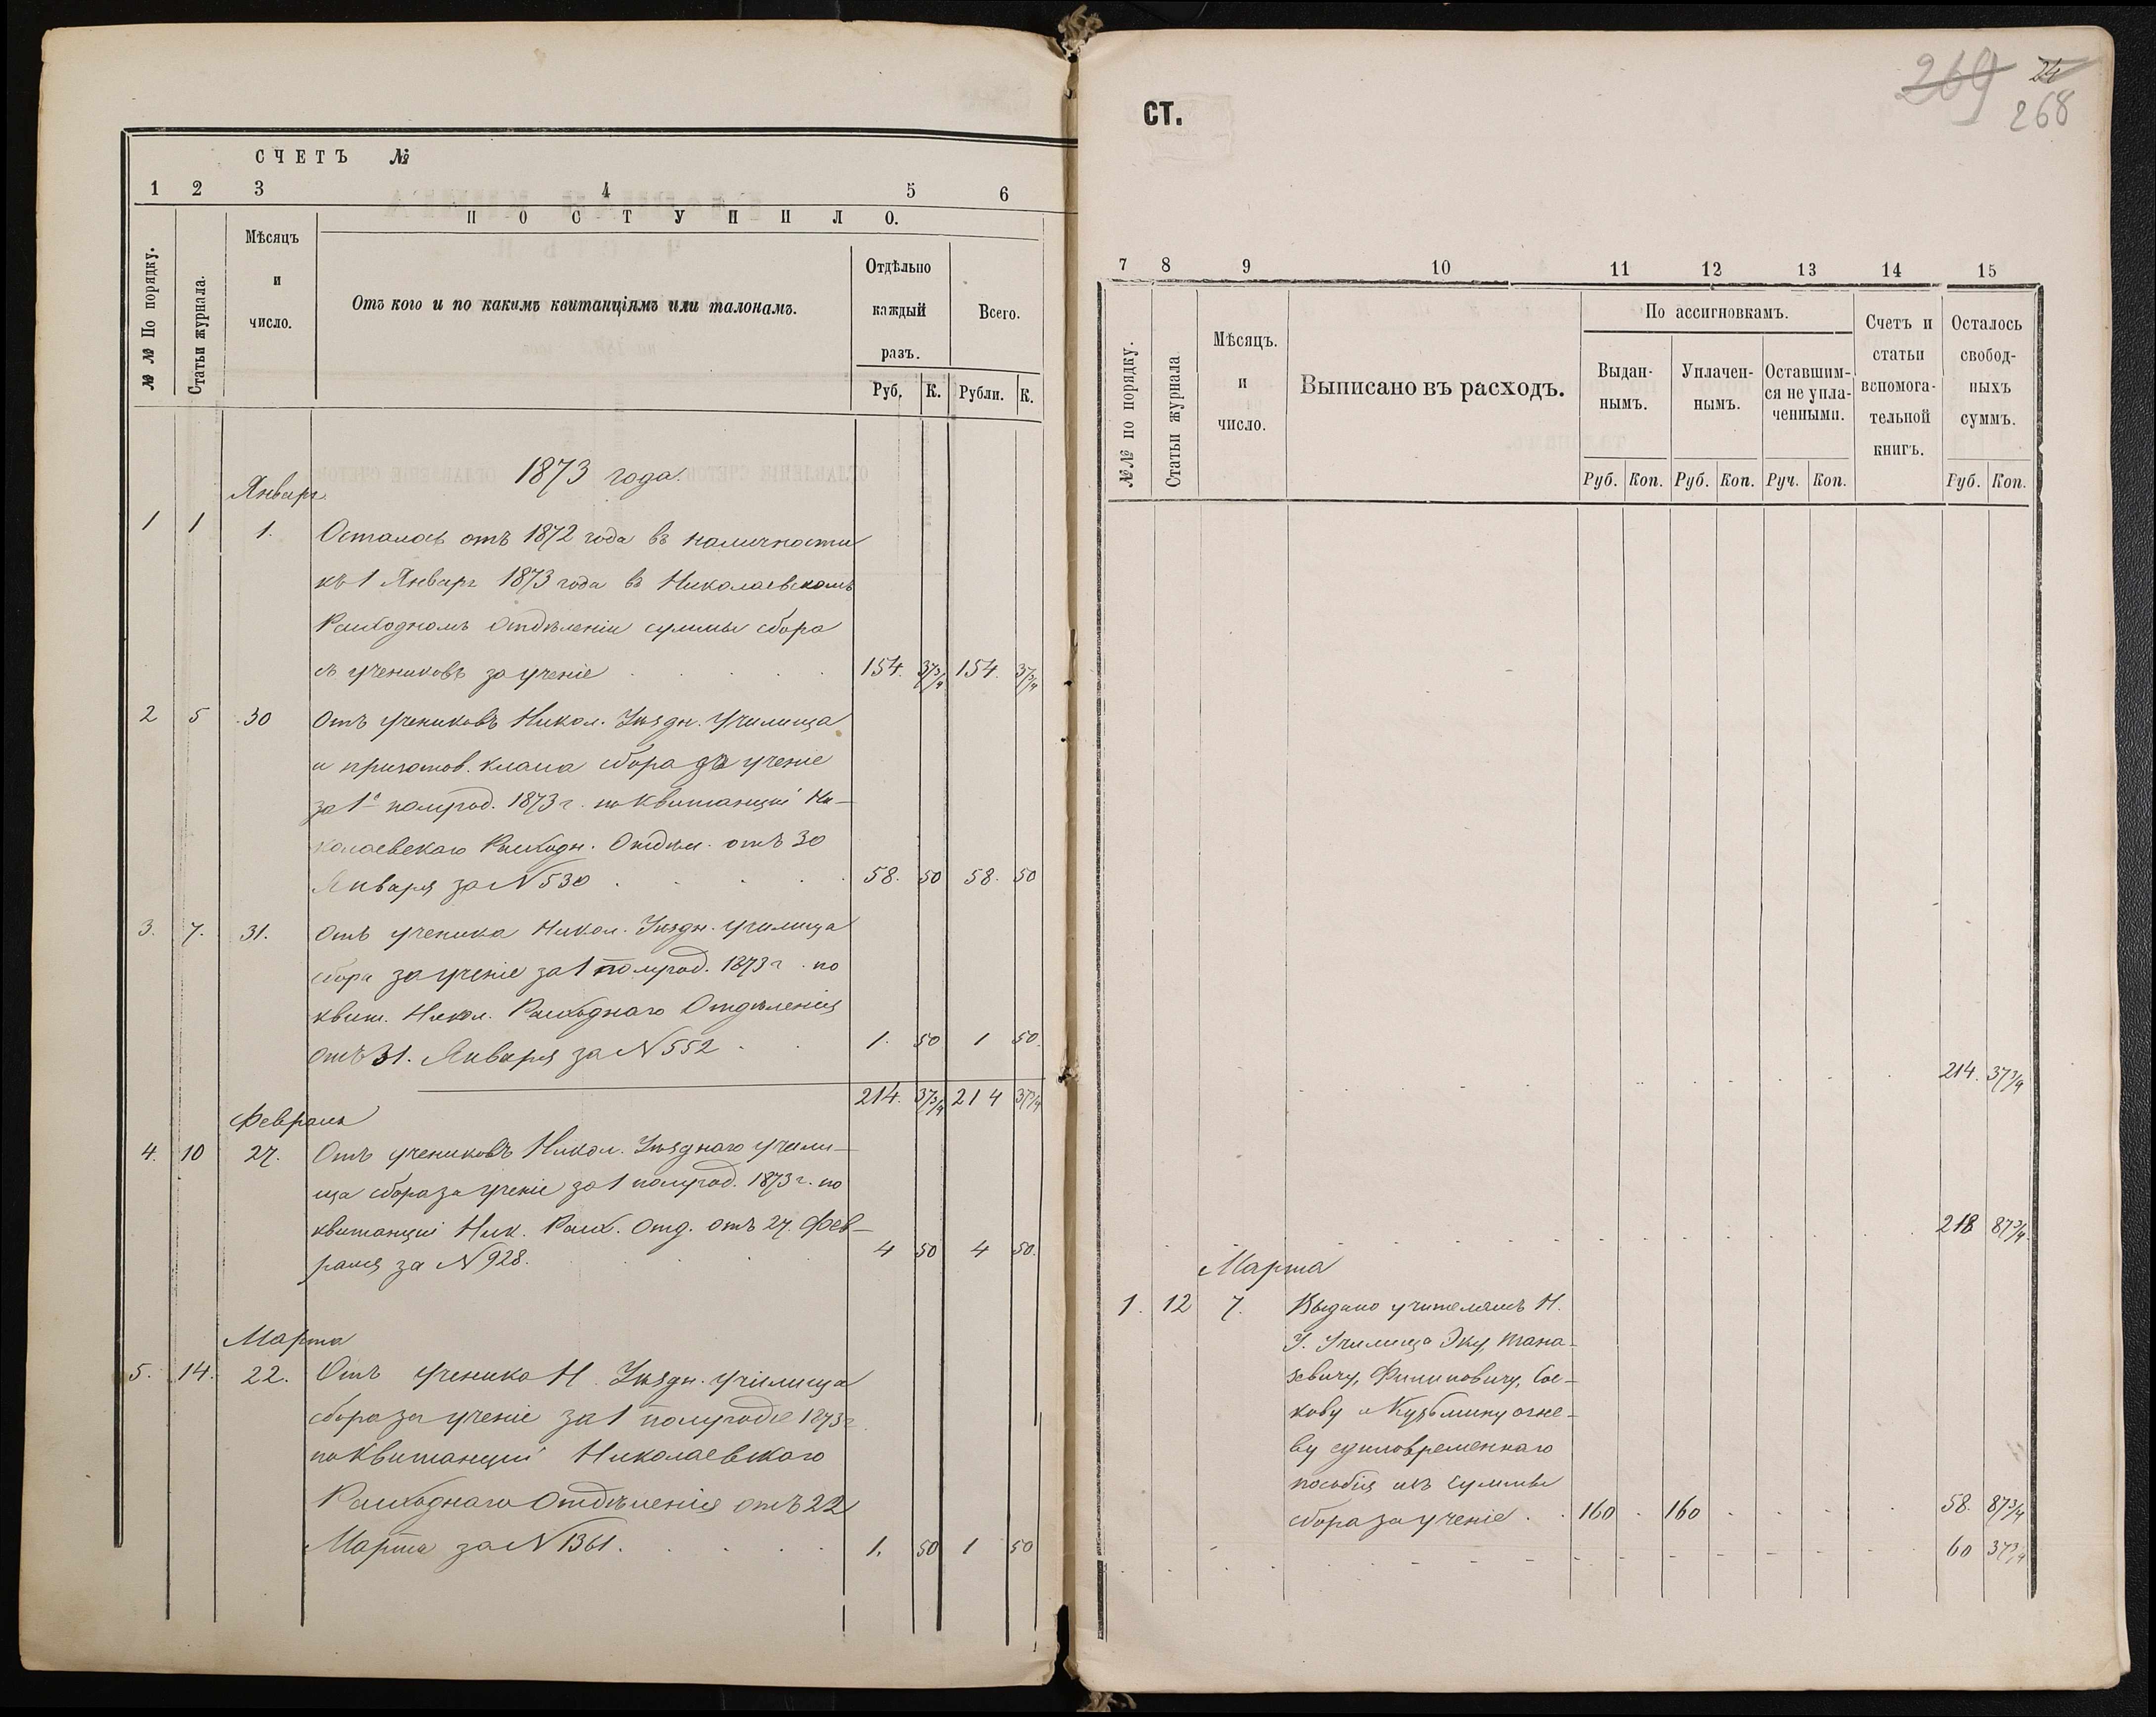 СЧЕТЪ №
1 2 3 4 5 6
ПОСТУПИЛО.
№№ По порядку.
Статьи журнала.
Мѣсяцъ
и
число.
Отъ кого и по какимъ квитанціямъ или талонамъ.
Отдѣльно
каждый
разъ.
Всего.
Руб. К. Рубли. К.
1873 года.
Январь
1 1 1. Осталось отъ 1872 года въ наличности
къ 1 Январь 1873 года въ Николаевскомъ
Расходномъ Отдѣленіи суммы сбора
съ учениковъ за ученіе 154. 37 3/4 154. 37 3/4
2 5 30 Отъ учениковъ Никол. Уѣздн. Училища
и приготов. класса сбора за ученіе
за 1е полугод. 1873 г. по квитанціи Ни-
колаевскаго Расходн. Отдѣл. отъ 30
Января за N 530 58. 50 58. 50
3. 7. 31. Отъ ученика Никол. Уѣздн. училища
сбора за ученіе за 1 полугод. 1873 г. по
квит. Никол. Расходнаго Отдѣленія
отъ 31. Января за N 552 1. 50 1 50.
214. 37 3/4 214 37 3/4
Февраль
4. 10 27. Отъ учениковъ Никол. Уѣзднаго учили-
ща сбора за ученіе за 1 полугод. 1873 г. по
квитанціи Ник. Расх. Отд. отъ 27. Фев-
раля за N 928. 4 50 4 50.
Марта
5. 14. 22. Отъ ученика Н. Уѣздн. училища
сбора за ученіе за 1 полугодіе 1873 г
по квитанціи Николаевскаго
Расходнаго Отдѣленія отъ 22
Марта за N 1361. 1. 50 1 50
СТ.
269 24
268
7 8 9 10 11 12 13 14 15
№№ по порядку.
Статьи журнала
Мѣсяцъ.
и
число.
Выписано въ расходъ.
По ассигновкамъ.
Выдан-
нымъ.
Уплачен-
нымъ.
Оставшим-
ся не упла-
ченными.
Счетъ и
статьи
вспомога-
тельной
книгъ.
Осталось
свобод-
ныхъ
суммъ.
Руб. Коп. Руб. Коп. Руч. Коп. Руб. Коп.
214. 37 3/4
218 87 3/4
Марта
1. 12 7. Выдано учителямъ Н.
У. Училища Эку, Тана-
севичу, Филиповичу, Сое-
кову и Кузьмину огне-
ву единовременнаго
пособія изъ суммы
сбора за ученіе 160 160 58. 87 3/4
60 37 3/4